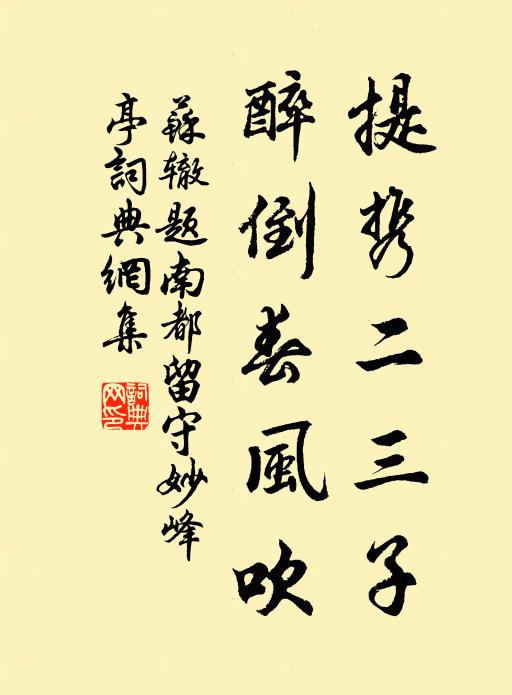 提携二三子
醉倒春風吹
蘇辙题南都留守妙峰
亭詞典網集
詞典
网印